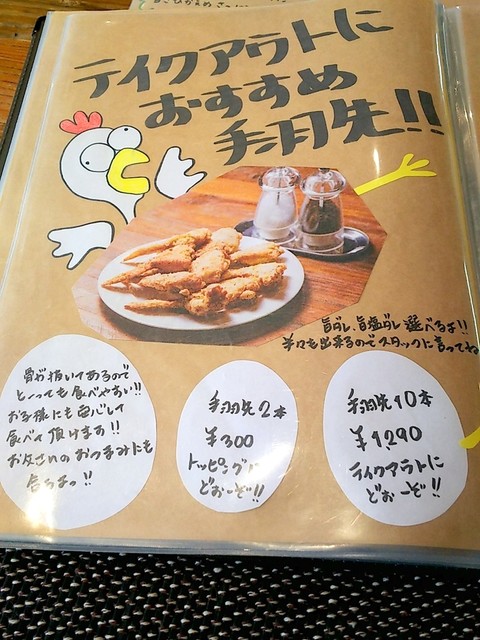 テイクアウトに
おすすめ
手羽先!!
旨ダレ、旨塩ダレ 選べるよ!!
半々も出来るのでスタッフに言ってね
骨が抜いてあるので
とーっても食べやすい!!
お子様にも安心して
食べて頂けます!!
お父さんのおつまみにも
合うよっ!!
手羽先2本
¥300
トッピングに
どおーぞ!!
手羽先10本
¥1,290
テイクアウトに
どおーぞ!!